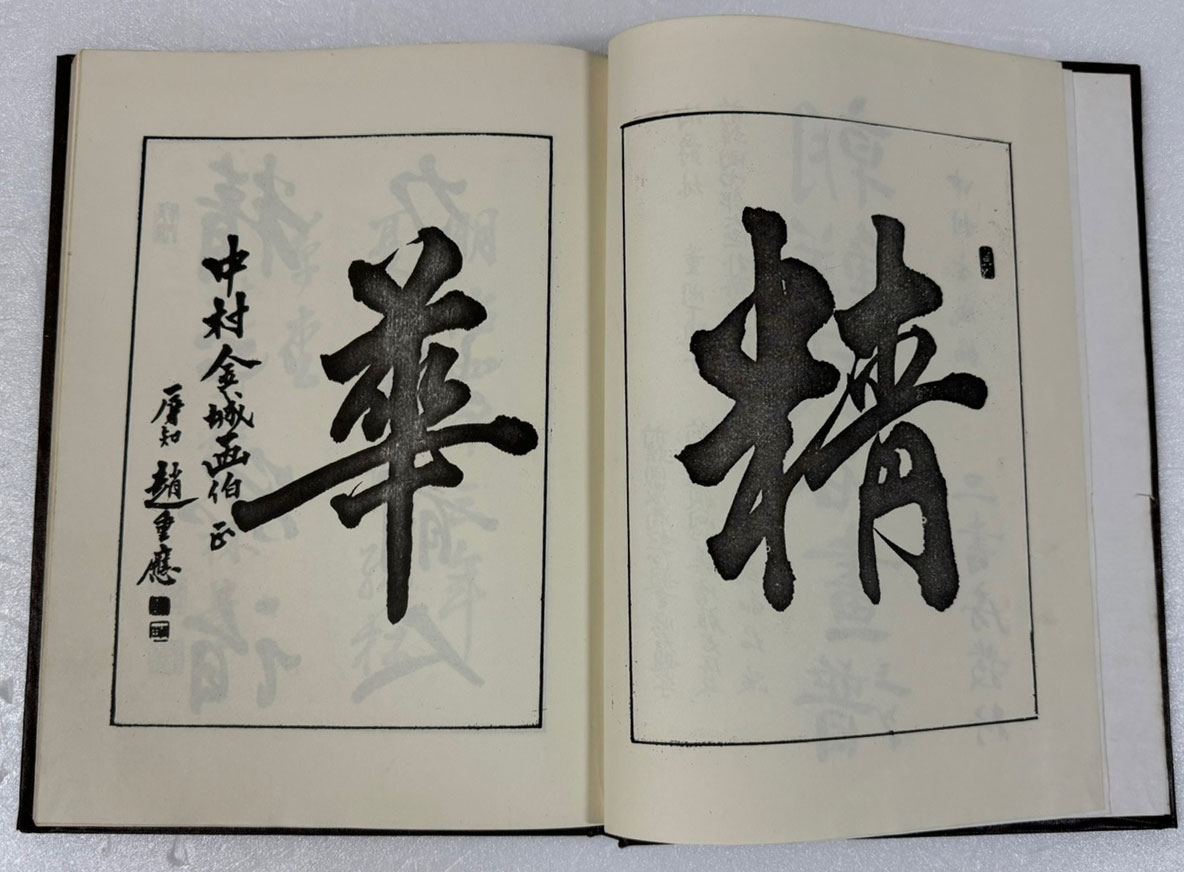 精
華
中村金城画伯正
辱知趙重應